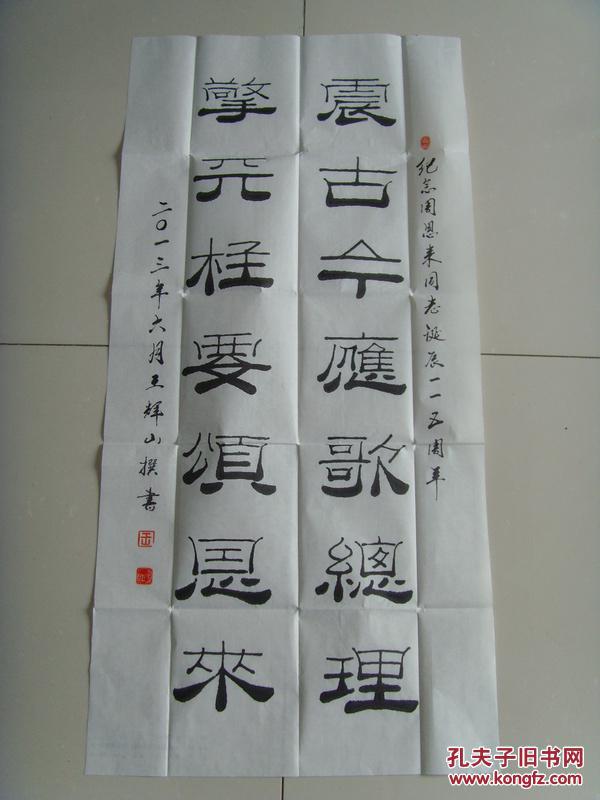 纪念周恩来同志诞辰一一五周年
震古今應歌總理
擎天柱要頌恩來
二〇一三年六月王輝山撰書
王
孔夫子旧书网
www.kongfz.com